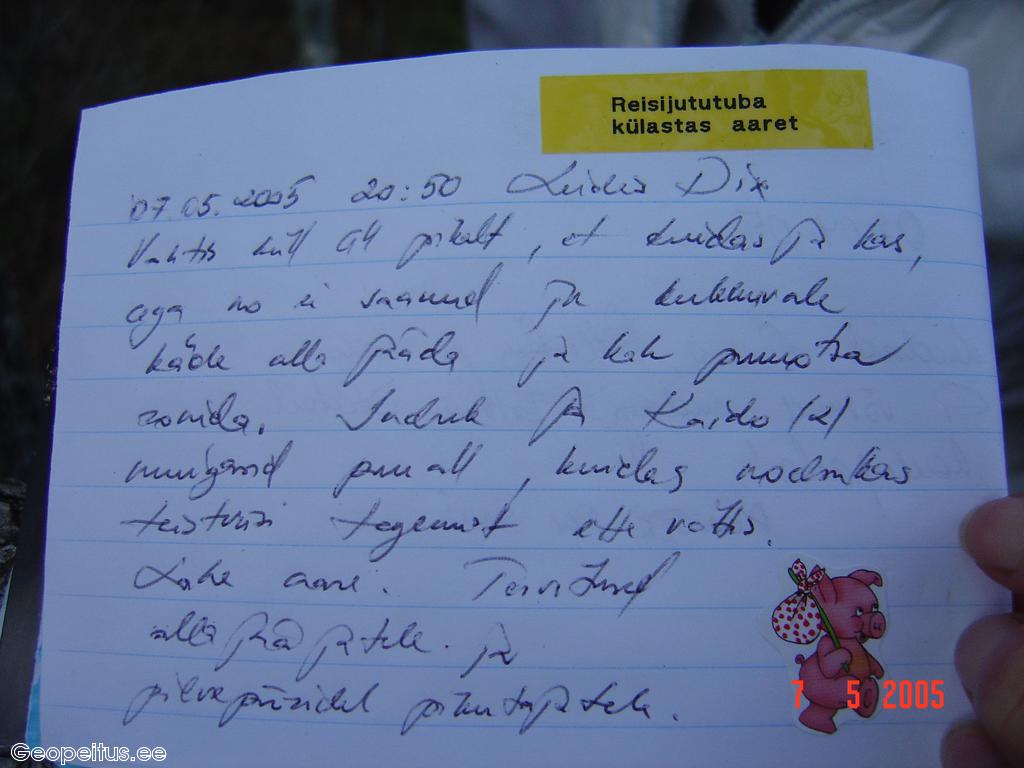 Reisijututuba
külastas aaret
07.05.2005 20:50 Leidis Dix
Vahtis küll all pikalt, et kuidas ja kas,
aga no ei saanud ju kukkuvale
käde alla jääda ja kah puuotsa
ronida. Indrek ja Kaido (2)
muigasid puu all, kuidas
teistmoodi ette võttis.
Lahe aare. Tervitused
allajääjatele. ja
pilvepiiridel
7 5 2005
Geopeitus.ee